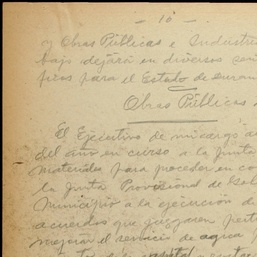 - 10 -
o) Obras Públicas e Industria
bajo dejará en diversos
ficos para el Estado de Duran
Obras Públicas
El Ejecutivo de mi cargo
del año en curso a la Junta
materiales para proceder en
la Junta Provisional de
Municipio a la ejecución de
acuerdos que juzguen pert
mejorar el servicio de agua
capital